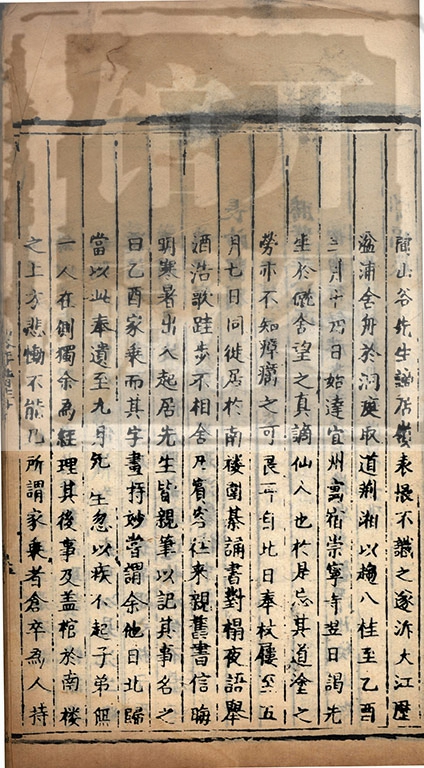 聞山谷先生謫居嶺表恨不識之遂泝大江歷
湓浦舍舟於洞庭取道荊湘以趨八桂至乙酉
三月十四日始達宜州寓宿崇寧寺翌日謁先
生於僦舍望之真謫仙人也於是忘其道塗之
勞亦不知瘴癘之可畏耳自此日奉杖屨至五
月七日同徙居於南樓圍棊誦書對榻夜語舉
酒浩歌跬步不相舍凡賓客往來親舊書信晦
明寒暑出入起居先生皆親筆以記其事名之
曰乙酉家乗而其字畫特妙嘗謂余他日北歸
當以此奉遺至九月先生忽以疾不起子弟無
一人在側獨余為經理其後事及盖棺於南樓
之上方悲慟不能已所謂家乗者倉卒為人持